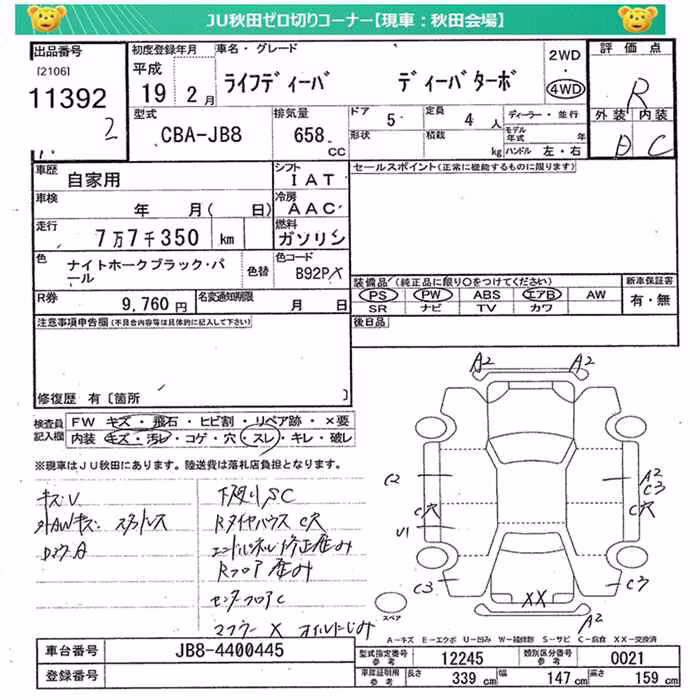 JU秋田ゼロ切りコーナー【現車：秋田会場】
出品番号
[2106]
11392
2
初度登録年月
平成
19 2月
車名・グレード
ライフディーバ ディーバターボ
2WD
・
4WD
評価点
R
外装 内装
D C
型式
CBA-JB8
排気量
658
CC
ドア 5
定員 4 人
形状
積載 kg
ディーラー・並行
モデル年式 年
ハンドル 左・右
車歴 自家用
シフト IAT
車検 年 月( 日)
冷房 AAC
走行 7万7千350 km
燃料 ガソリン
色 ナイトホークブラック・パール
色替
色コード B92P
R券 9,760円
名変通知期限 月 日
セールスポイント(正常に機能するものに限ります)
装備品 (純正品に限り○をつけてください)
PS PW ABS エアB AW
SR ナビ TV カワ
新車保証書
有・無
後日品
注意事項申告欄(不具合内容等は具体的に記入して下さい)
修復歴 有〔箇所 〕
検査員記入欄
FW キズ・飛石・ヒビ割・リペア跡・×要
内装 キズ・汚レ・コゲ・穴・スレ・キレ・破レ
※現車はJU秋田にあります。陸送費は落札店負担となります。
キズV
外AWキズ スタッドレス
下廻りSC
Rタイヤハウス C穴
エンドパネル修正歪み
Rフロア歪み
センターフロアC
マフラーX オイルにじみ
A2 A2
C2
A2
C3
C穴 C穴
U1
C3 C3
XX
A2
スペア
A-キズ E-エクボ U-凹み W-補修跡 S-サビ C-腐食 XX-交換済
車台番号 JB8-4400445
登録番号
型式指定番号 参考 12245
類別区分番号 参考 0021
車庫証明用 参考 長さ 339 cm 幅 147 cm 高さ 159 cm